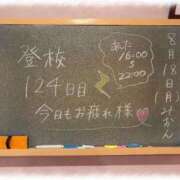 8月18日(月)みかん
登校
124日目
あした
16:00
22:00
今日もお疲れ様